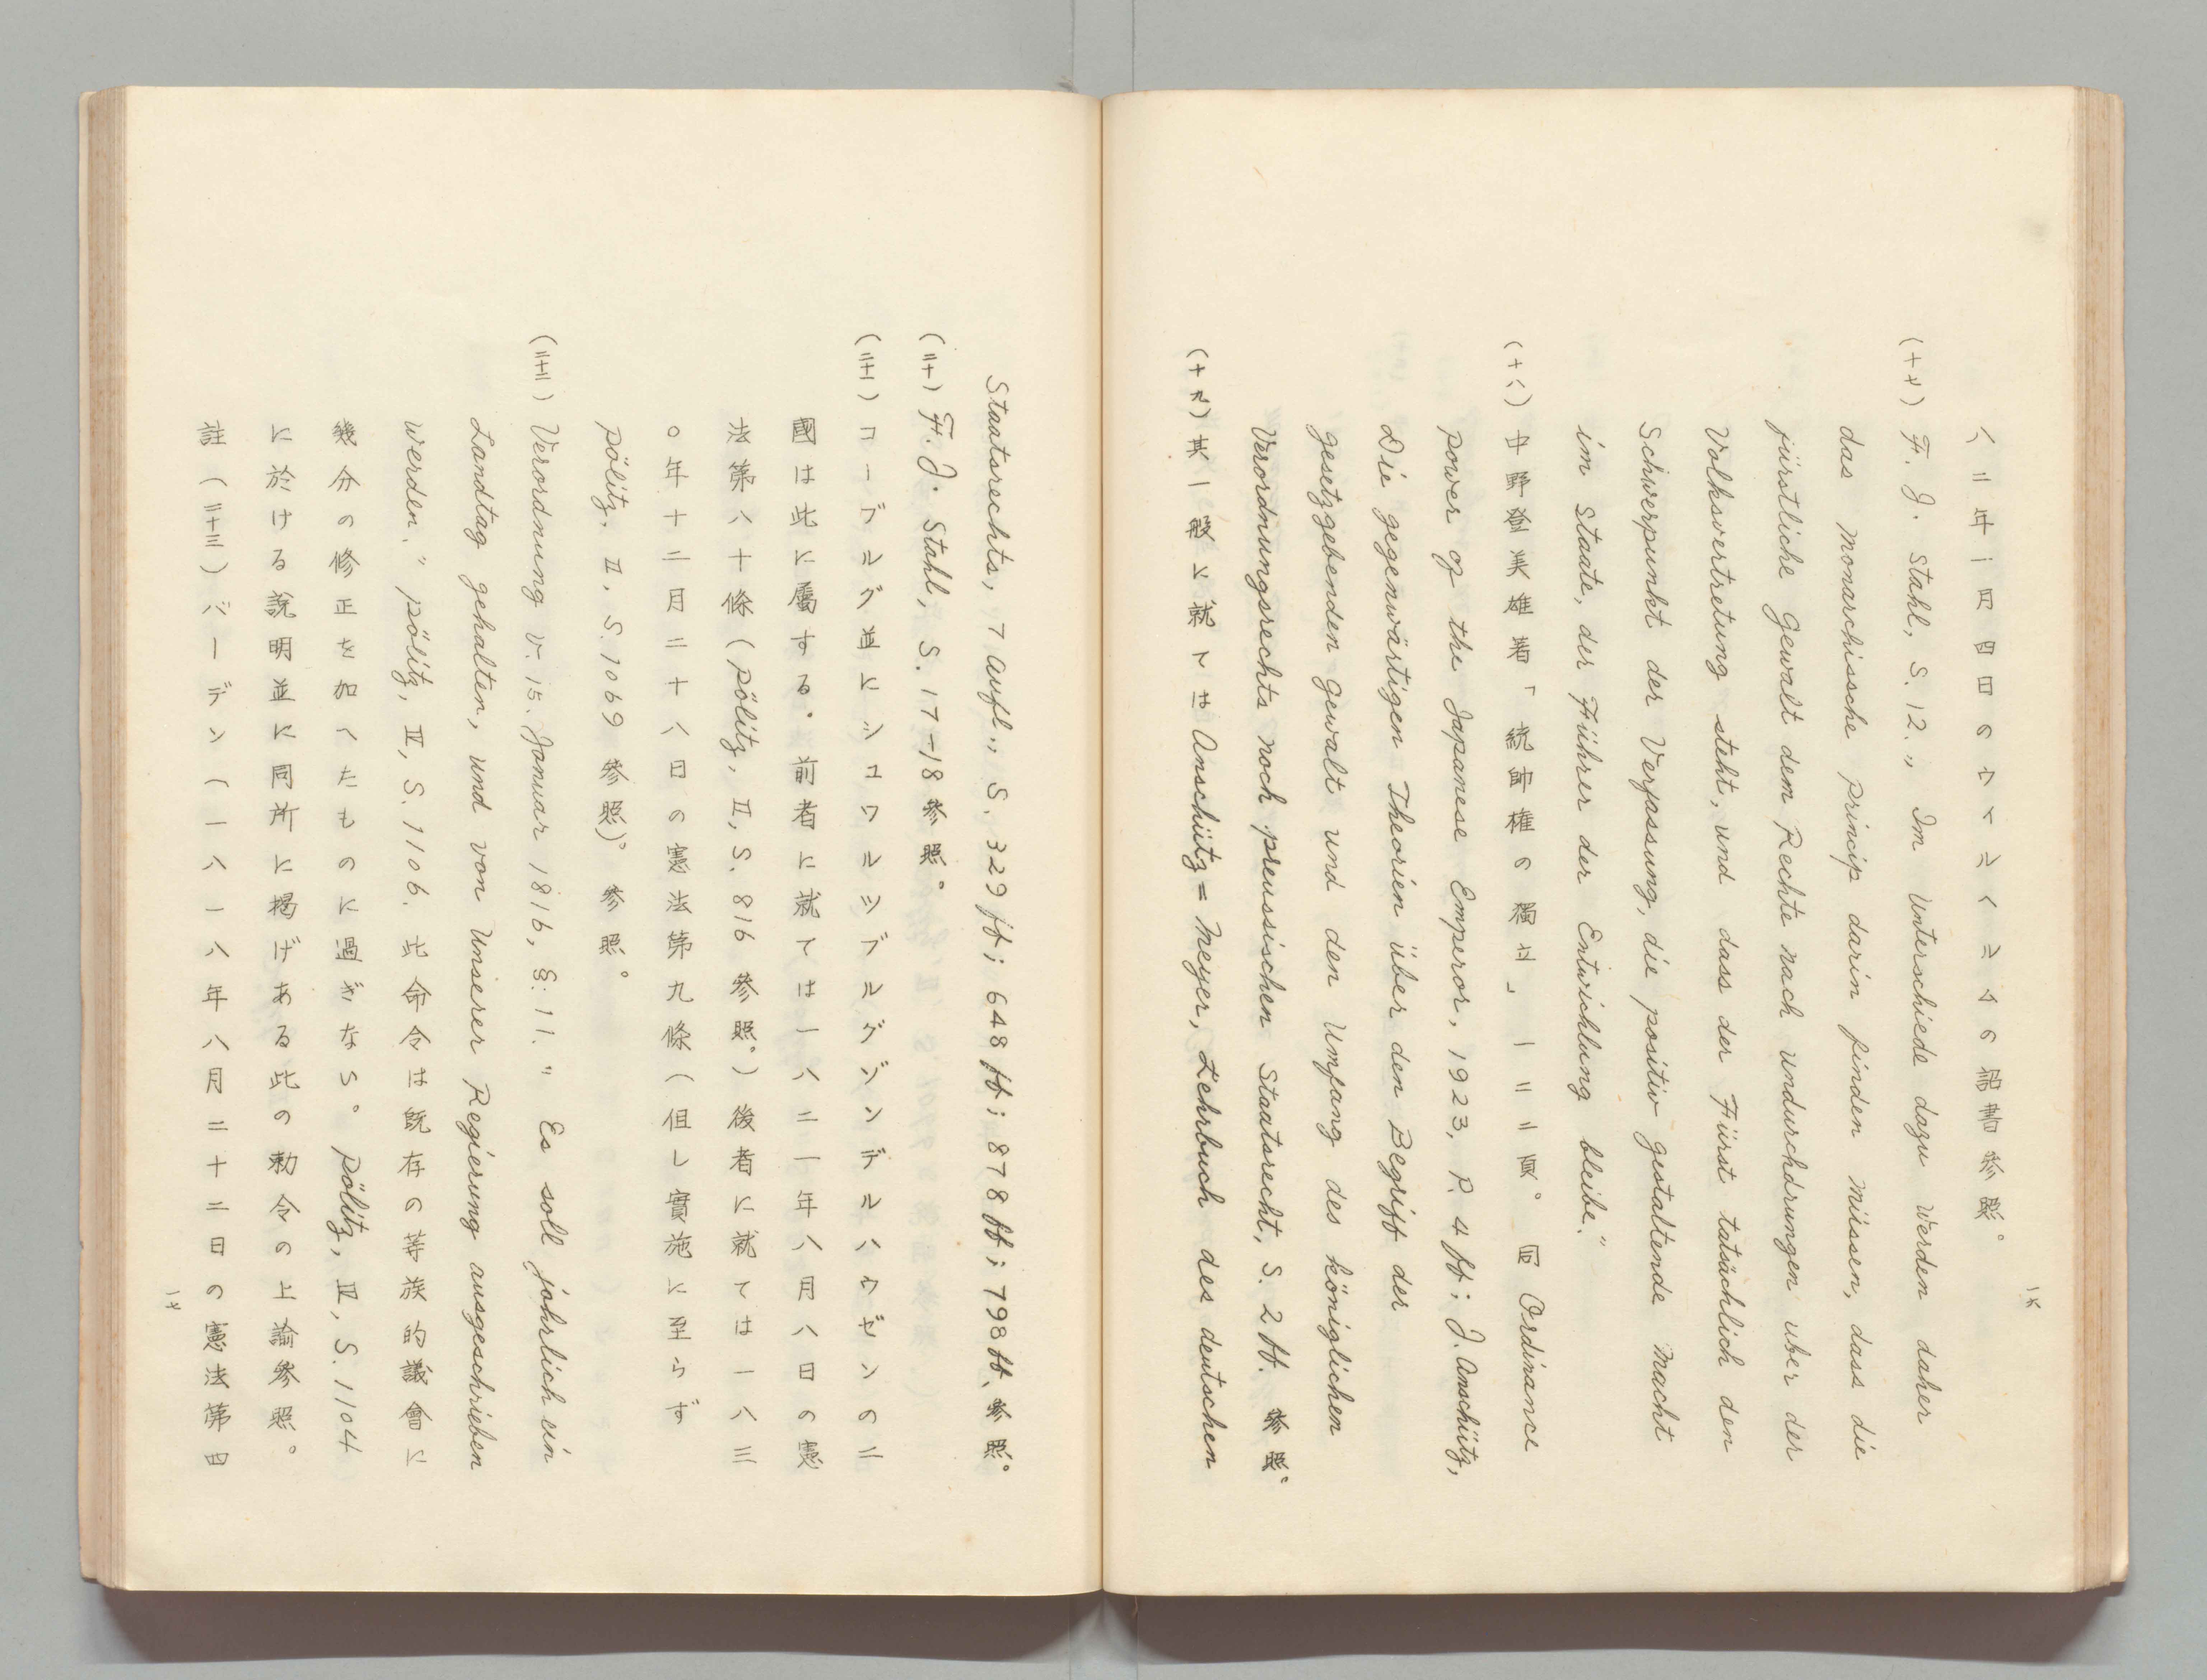 八二年一月四日のウイルヘルムの詔書參照。
(十七) F. J. Stahl, S. 12. „ Im Unterschiede dazu werden daher
das monarchissche princip darin finden müssen, dass die
fürstliche Gewalt dem Rechte nach undurchdrungen uber der
Volksvertretung steht, und dass der Fürst tatsächlich den
Schwerpunkt der Verfassung, die positiv gestaltende Macht
im Staate, der Führer der Entwichlung bleibe.“
(十八) 中野登美雄著「統帥權の獨立」一二二頁。同 Ordinance
power of the Japanese Emperor, 1923, P. 4 ff; J. Anschütz,
Die gegenwärtigen Theorien über den Begriff der
gesetzgebenden Gewalt und den Umfang des königlichen
Verordnungsrechts noch preussischen Staatsrecht, S. 2 ff. 參照。
(十九) 其一般に就ては Anschütz=Meyer, Lehrbuch des deutschen
一六
Staatsrechts, 7 Aufl., S. 329 ff; 648 ff; 878 ff; 798 ff、參照。
(二十) F. J. Stahl, S. 17-18 參照。
(二十一) コーブルグ並にシュワルツブルグゾンデルハウゼンの二
國は此に屬する。前者に就ては一八二一年八月八日の憲
法第八十條(pölitz, II, S. 816 參照。)後者に就ては一八三
〇年十二月二十八日の憲法第九條(但し實施に至らず
pölitz, II, S. 1069 參照)。參照。
(二十二) Verordnung v. 15. Januar 1816, §: 11. „ Es soll jährlich ein
Landtag gehalten, und von Unserer Regierung ausgeschrieben
werden.“ pölitz, II, S. 1106. 此命令は既存の等族的議會に
幾分の修正を加へたものに過ぎない。pölitz, II, S. 1104
に於ける說明並に同所に揭げある此の勅令の上諭參照。
註(二十三) バーデン(一八一八年八月二十二日の憲法第四
一七